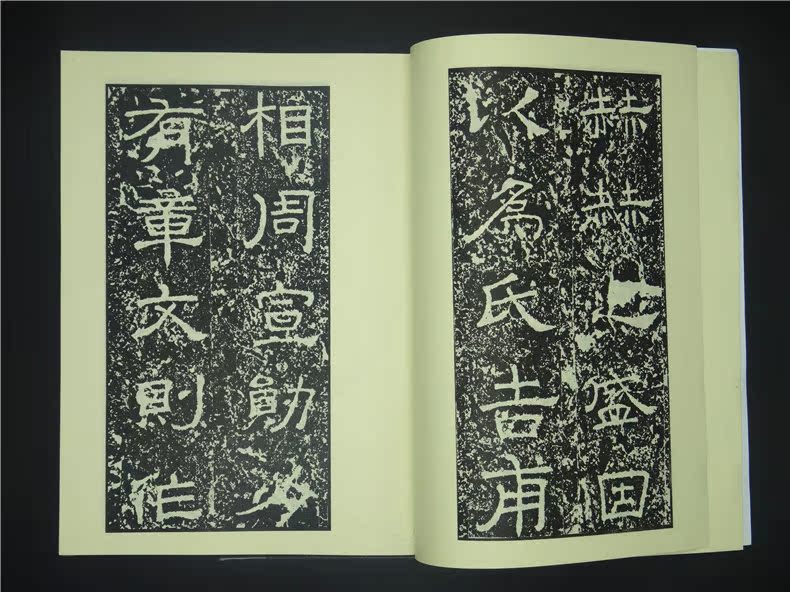 赫赫之盛因
以為氏吉甫
相周宣勛力
有章文則作